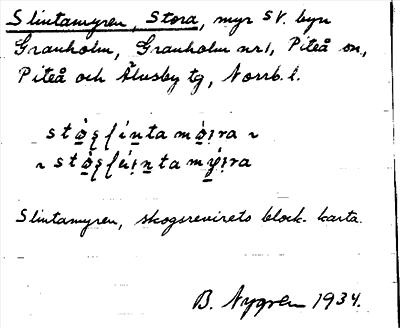 Slintamyren, Stora, myr SV. byn
Granholm, Granholm nr 1, Piteå sn,
Piteå och Älvsby tg, Norrb. l.
Slintamyren, skogsrevirets block-karta.
B. Nygren 1934.